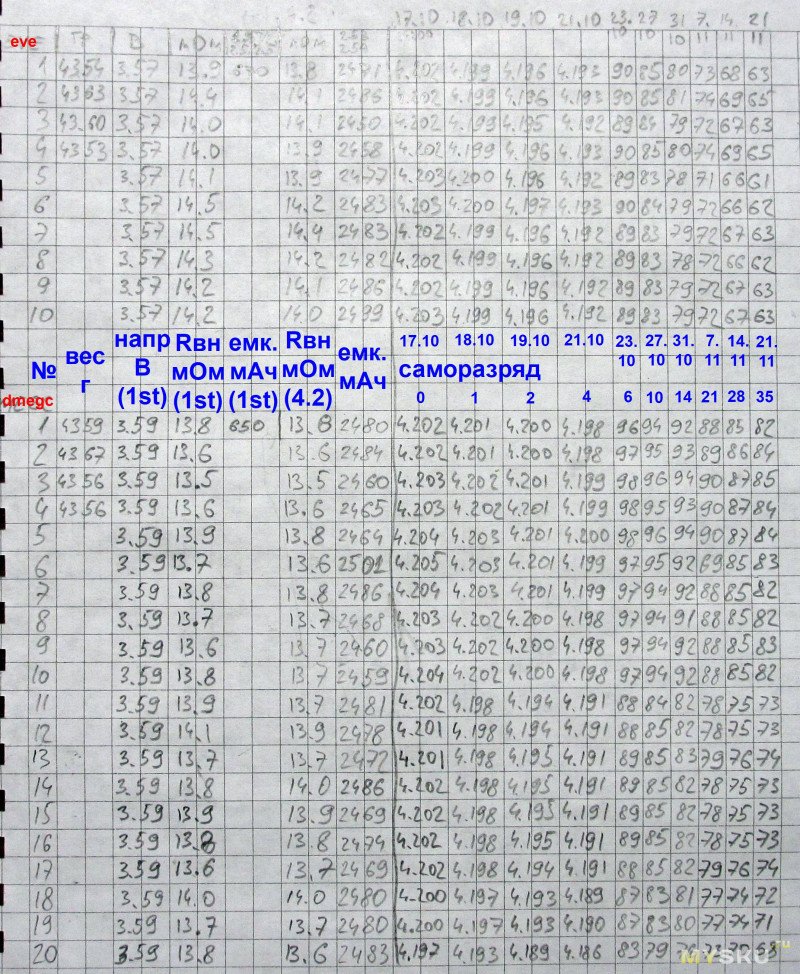 17.10 18.10 19.10 21.10 23. 27 31 7. 14. 21
10 10 10 11 11 11
eve B мОм мОм
1 4354 3.57 13.9 13.8 2471 4.202 4.199 4.196 4.193 90 85 80 73 68 63
2 4363 3.57 14.4 14.1 2486 4.202 4.199 4.196 4.193 90 85 81 74 69 65
3 43.60 3.57 14.0 14.1 2450 4.202 4.199 4.195 4.192 89 84 79 72 67 63
4 4353 3.57 14.0 13.9 2458 4.202 4.199 4.196 4.193 90 85 80 74 69 65
5 3.57 14.1 13.9 2477 4.203 4.200 4.196 4.192 89 83 78 71 66 61
6 3.57 14.5 14.2 2483 4.203 4.200 4.197 4.193 90 84 79 72 66 62
7 3.57 14.5 14.4 2483 4.202 4.199 4.196 4.192 89 83 79 72 67 63
8 3.57 14.3 14.2 2482 4.202 4.199 4.196 4.192 89 83 78 72 66 62
9 3.57 14.2 14.1 2486 4.202 4.199 4.196 4.192 89 83 79 72 67 63
10 3.57 14.2 14.0 2499 4.203 4.199 4.196 4.192 89 83 79 72 67 63
напр Rвн емк. Rвн 17.10 18.10 19.10 21.10 23. 27. 31. 7. 14. 21.
вес В мОм мАч мОм емк. 10 10 10 11 11 11
№ г (1st) (1st) (1st) (4.2) мАч саморазряд
0 1 2 4 6 10 14 21 28 35
dmegc
1 4359 3.59 13.8 650 13.8 2480 4.202 4.201 4.200 4.198 96 94 92 88 85 82
2 4367 3.59 13.6 13.6 2484 4.202 4.201 4.200 4.198 97 95 93 89 86 84
3 4356 3.59 13.5 13.5 2460 4.203 4.202 4.201 4.199 98 96 94 90 87 85
4 4356 3.59 13.6 13.6 2465 4.203 4.202 4.201 4.199 98 95 93 90 87 84
5 3.59 13.9 13.8 2464 4.204 4.203 4.201 4.200 98 96 94 90 87 84
6 3.59 13.7 13.6 2501 4.205 4.203 4.201 4.199 97 95 92 69 85 83
7 3.59 13.8 13.8 2486 4.204 4.203 4.201 4.199 97 94 92 88 85 82
8 3.59 13.7 13.7 2468 4.203 4.202 4.200 4.198 97 94 91 88 85 82
9 3.59 13.6 13.7 2460 4.203 4.202 4.200 4.198 97 94 92 88 85 83
10 3.59 13.8 13.7 2459 4.204 4.202 4.200 4.198 97 94 92 88 85 82
11 3.59 13.9 13.7 2481 4.202 4.198 4.194 4.191 88 84 82 78 75 73
12 3.59 14.1 13.9 2478 4.201 4.198 4.194 4.191 88 85 82 78 75 73
13 3.59 13.7 13.7 2472 4.201 4.198 4.195 4.191 89 85 83 79 76 74
14 3.59 13.8 14.0 2486 4.202 4.198 4.195 4.191 89 85 82 78 75 73
15 3.59 13.9 13.9 2469 4.202 4.198 4.195 4.191 89 85 82 78 75 73
16 3.59 13.8 13.8 2474 4.202 4.198 4.195 4.191 89 85 82 78 75 73
17 3.59 13.6 13.7 2469 4.202 4.198 4.194 4.191 88 85 82 79 76 74
18 3.59 14.0 14.0 2480 4.200 4.197 4.193 4.189 87 83 81 77 74 72
19 3.59 13.7 13.7 2480 4.200 4.197 4.193 4.190 87 83 80 77 74 71
20 3.59 13.8 13.6 2483 4.197 4.193 4.189 4.186 83 79 68
MYSKU.ru